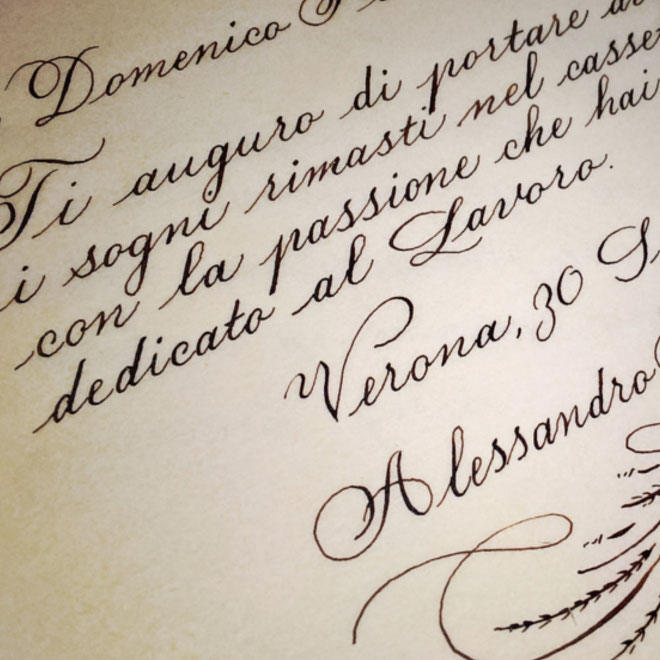 Domenico
Ti auguro di portare
i sogni rimasti nel
con la passione che hai
dedicato al Lavoro.
Verona, 30
Alessandro